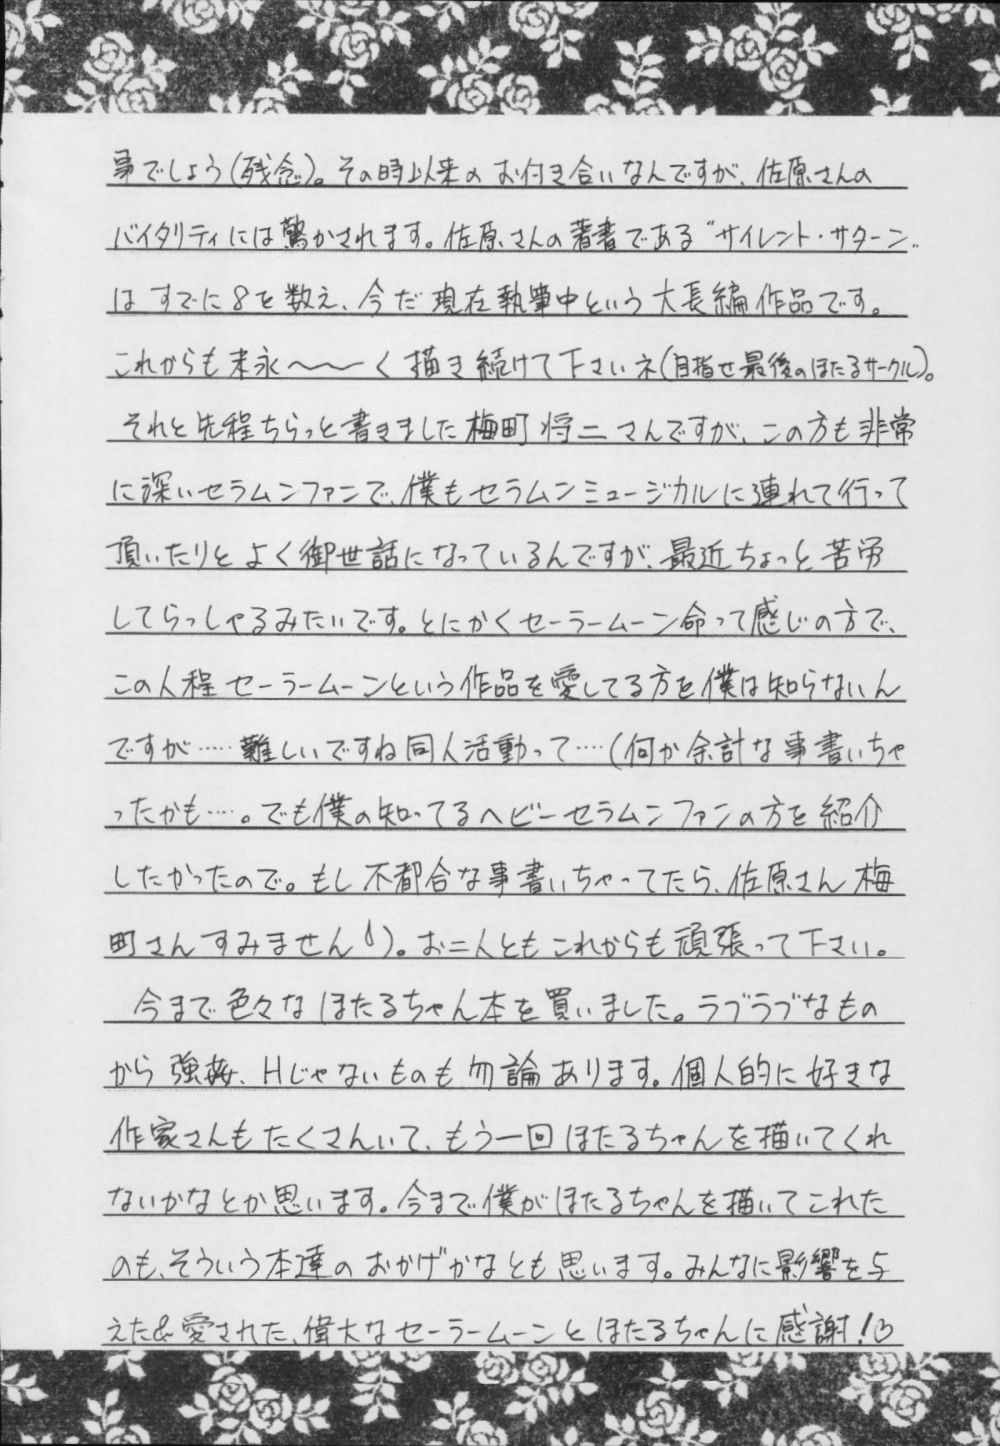 事でしょう(残念)。その時以来のお付き合いなんですが、佐原さんの
バイタリティには驚かされます。佐原さんの著書である“サイレント・サターン”
はすでに8を数え、今だ現在執筆中という大長編作品です。
これからも末永〜〜く描き続けて下さいネ(目指せ最後のほたるサークル)。
それと先程ちらっと書きました梅町将二さんですが、この方も非常
に深いセラムンファンで、僕もセラムンミュージカルに連れて行って
頂いたりとよく御世話になっているんですが、最近ちょっと苦労
してらっしゃるみたいです。とにかくセーラームーン命って感じの方で、
この人程セーラームーンという作品を愛してる方を僕は知らないん
ですが……難しいですね同人活動って…(何か余計な事書いちゃ
ったかも…。でも僕の知ってるヘビーセラムンファンの方を紹介
したかったので。もし不都合な事書いちゃってたら、佐原さん梅
町さんすみません)。お二人ともこれからも頑張って下さい。
今まで色々なほたるちゃん本を買いました。ラブラブなもの
から強姦、Hじゃないものも勿論あります。個人的に好きな
作家さんもたくさんいて、もう一回ほたるちゃんを描いてくれ
ないかなとか思います。今まで僕がほたるちゃんを描いてこれた
のも、そういう本達のおかげかなとも思います。みんなに影響を与
えた&愛された、偉大なセーラームーンとほたるちゃんに感謝!♡